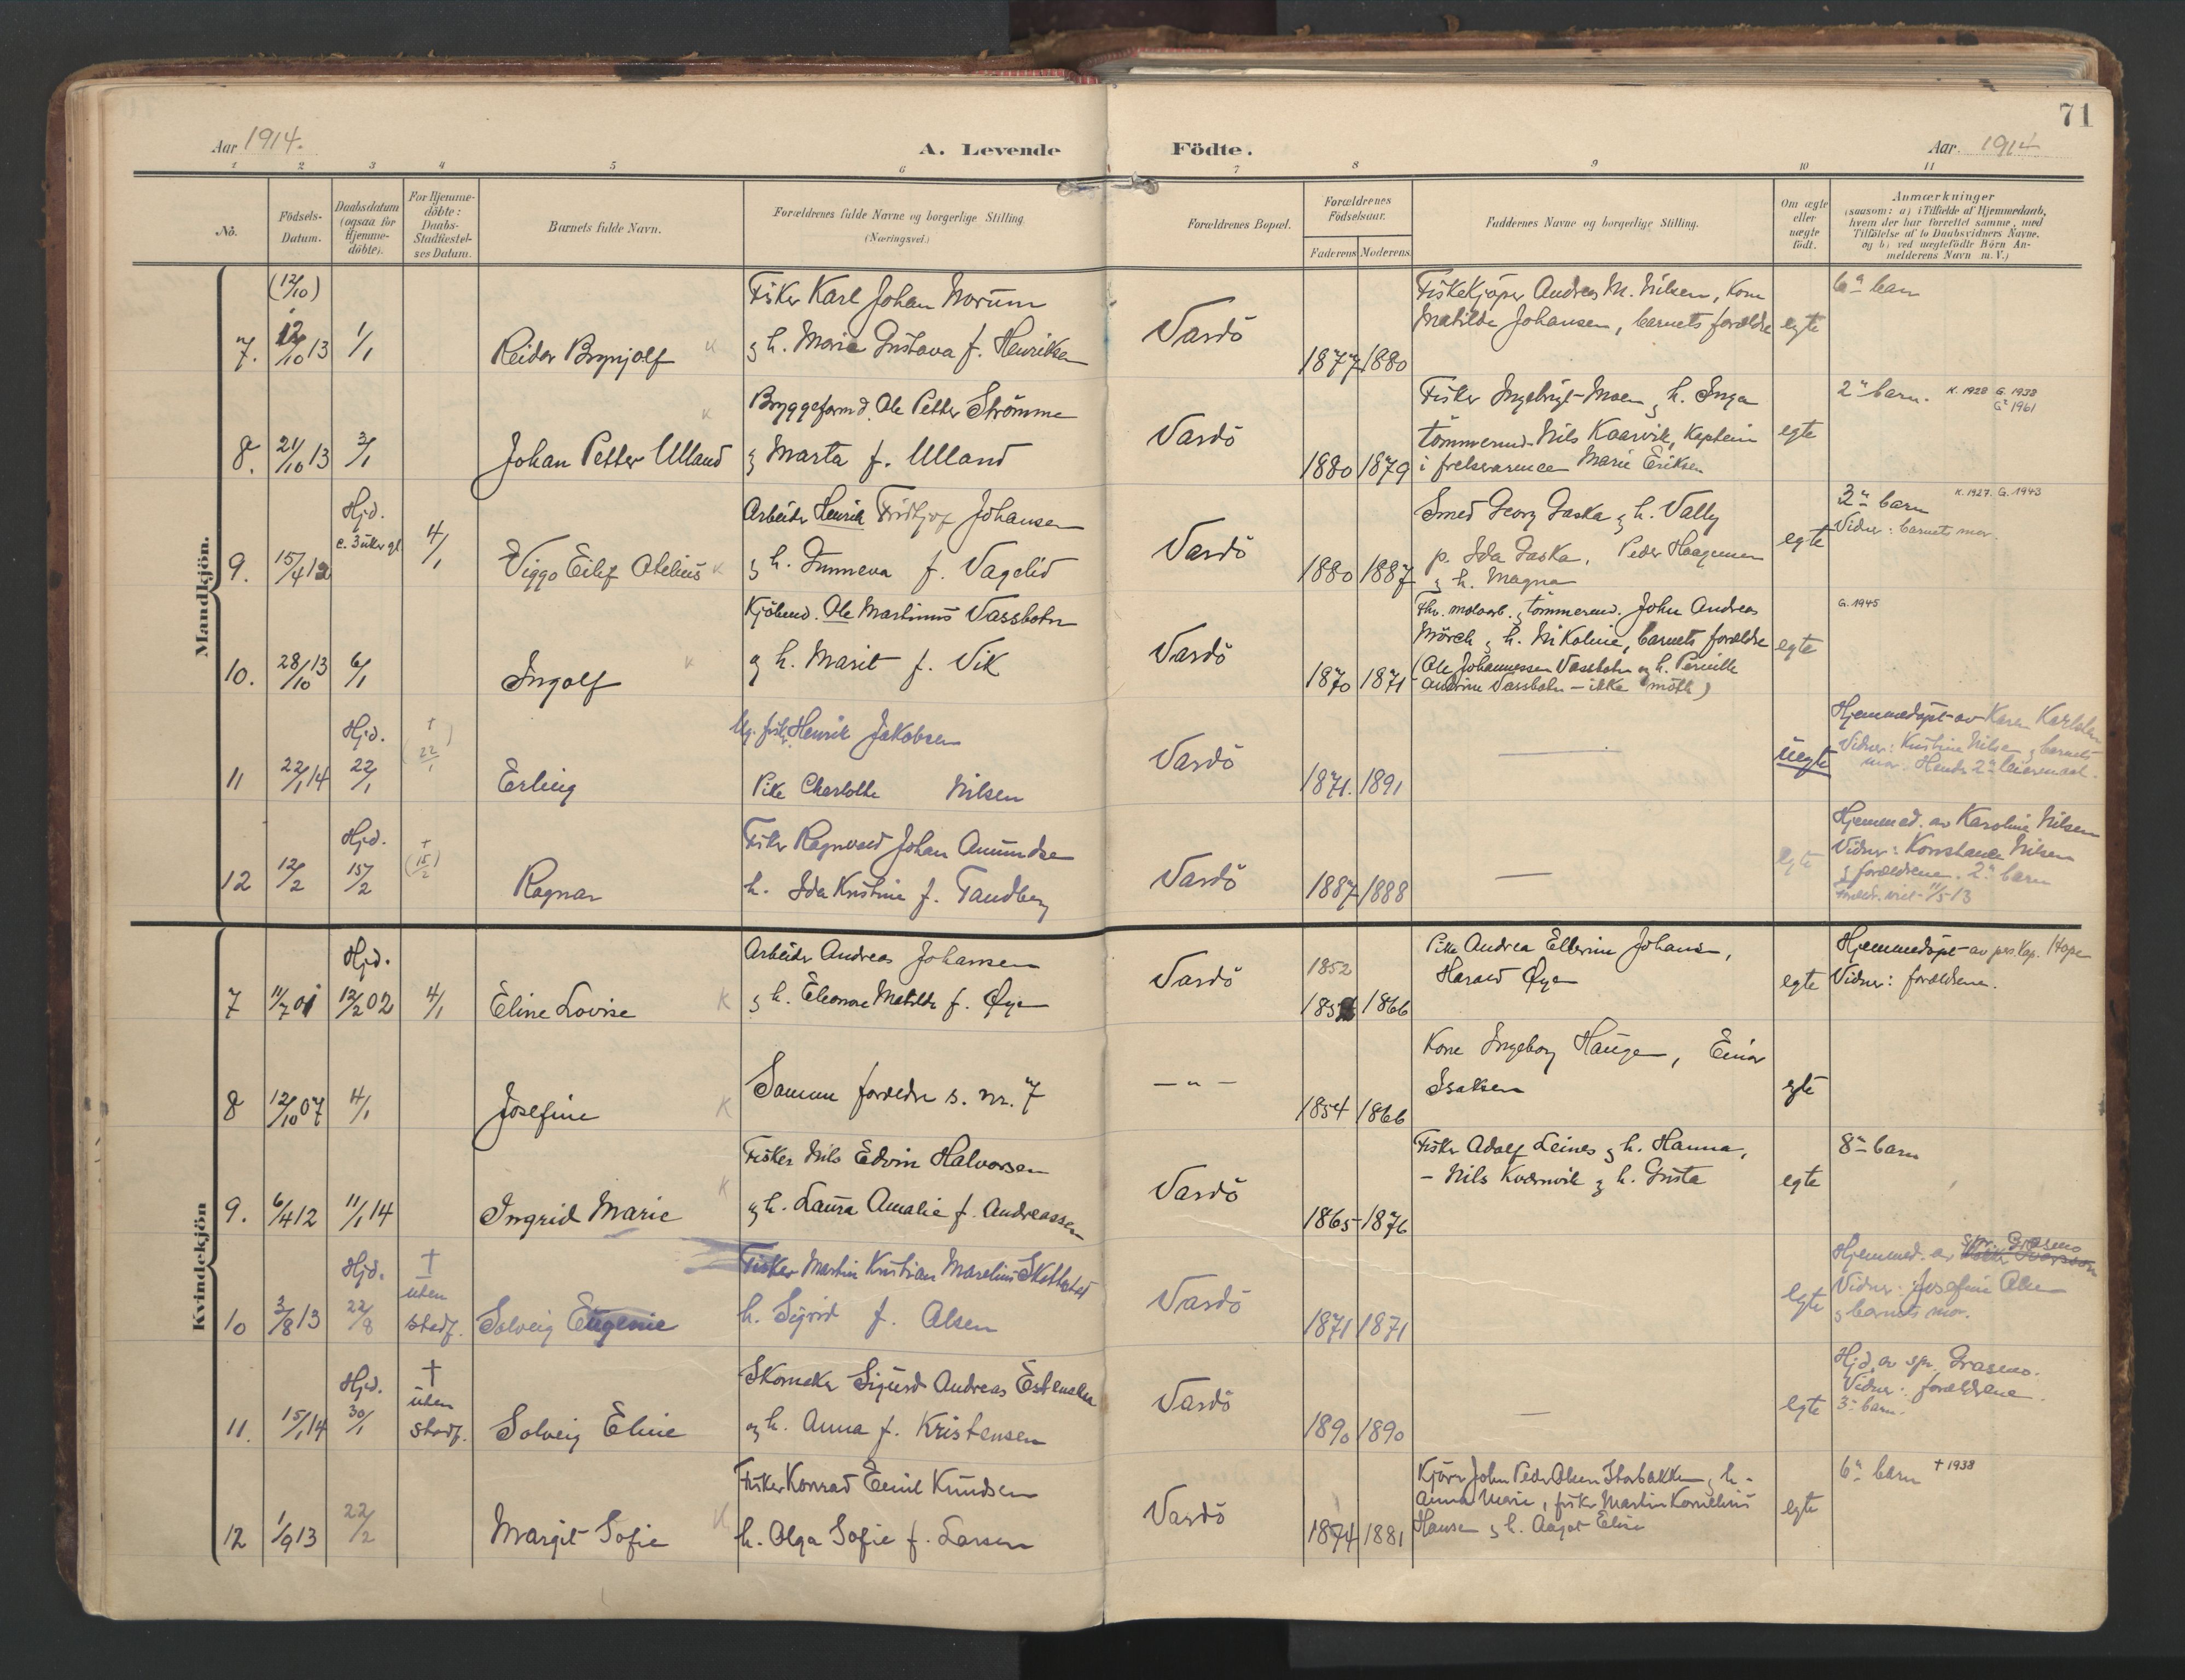 71
Aar 1914.
A. Levende Födte.
Aar. 1914
1 2 3 4 5 6 7 8 9 10 11
No.
Födsels-
Datum.
Daabsdatum
(ogsaa for
Hjemme-
döbte).
For Hjemme-
döbte:
Daabs-
Stadfæstel-
ses Datum.
Barnets fulde Navn.
Forældrenes fulde Navne og borgerlige Stilling
(Næringsvei.)
Forældrenes Bopæl.
Forældrenes
Födselsaar.
Faderens Moderens
Faddernes Navne og borgerlige Stilling.
Om ægte
eller
uægte
födt.
Anmærkninger
(saasom: a) i Tilfælde af Hjemmedaab,
hvem der har forrettet samme, med
Tilföielse af to Daabsvidners Navne.
og b) ved uægtefödte Börn An-
melderens Navn m. V.)
Mandkjön.
(12/10)
7. 12/10 13 1/1 Reidar Brynjolf
Fisker Karl Johan Norum
g h. Marie Gustava f. Henriksen
Vardö
1877 1880
Fiskekjöper Andreas M. Nilsen, Kone
Matilde Johansen, barnets forældre
egte
6te barn
8. 21/10 13 3/1 Johan Petter Ulland
Bryggeformd. Ole Petter Strömme
g Marta f. Ulland
Vardö
1880 1879
Fisker Ingebrigt Moen g h. Inga
tömmermd. Nils Kaarvik, Kaptein
i frelsesarmeen Marie Eriksen
egte
2et barn. K. 1928 G. 1938
G2 1961
9. 15/4 12 Hjd.
c. 3 uker gl. 4/1 Viggo Eilif Atelius
Arbeider Henrik Fridtjof Johansen
g h. Gunneva f. Vagelid
Vardö
1880 1887
Smed Georg Jaska g h. Vally
p. Ida Jaska, Peder Haagensen
g h. Magna
egte
3e barn K. 1927. G. 1943
Vidner: barnets mor.
10. 28/10 13 6/1 Ingolf
Kjöbmd. Ole Martinus Vassbotn
g h. Marit f. Vik
Vardö
1870 1871
tömmermd. John Andreas
Mörch g h. Nikoline, barnets forældre
(Ole Johannessen Vassbotn g h. Pernille
Andrine Vassbotn – ikke mött)
egte
G. 1945
11 22/1 14 Hjd.
22/1 † (22/1) Erling
Ug. fisk. Henrik Jakobsen
Pike Charlotte Nilsen
Vardö
1871. 1891
uegte
Hjemmedöpt av Karen Karlsen
Vidner: Kristine Nilsen g barnets
mor. Hendes 2et leiermaal.
12 12/2 Hjd.
15/2 † (15/2) Ragnar
Fisker Ragnvald Johan Amundsen
h. Ida Kristine f. Tandberg
Vardö
1887 1888
egte
Hjemmed. av Karoline Nilsen
Vidner: Konstance Nilsen
g forældrene. 2et barn
Foreldr. viet 11/5 13
Kvindekjön
7 11/7 01 Hjd.
12/2 02 4/1 Eline Lovise
Arbeider Andreas Johansen
g h. Eleonore Matilde f. Øyen
Vardö
1852
1866
Pike Andrea Ellerine Johans.,
Harald Øyen
egte
Hjemmedöpt av pers. Kap. Hope
Vidner: forældrene.
8 12/10 07 4/1 Josefine
Samme forældre s. nr. 7
– " –
1854 1866
Kone Ingeborg Haugen, Einar
Isaksen
egte
9. 6/4 12 11/1 14 Ingrid Marie
Fisker Nils Edvin Halvorsen
g h. Laura Amalie f. Andreassen
Vardö
1865 1876
Fisker Adolf Leines g h. Hanna,
– Nils Kværnvik g h. Gusta
egte
8de barn
10 3/8 13 Hjd.
22/8 † uten
stadf. Solveig Eugenie
Fisker Martin Kristian Marelius Skottestad
h. Sigrid f. Alsen
Vardö
1871 1871
egte
Hjemmed. av spr. Grasmo
Vidner: Josefine Alsen
g barnets mor.
11. 15/1 14 Hjd.
30/1 † uten
stadf. Solveig Eline
Skomaker Sigurd Andreas Estensen
og h. Anna f. Kristensen
Vardö
1890 1890
egte
Hjd. av spr. Grasmo.
Vidner: forældrene.
3e barn.
12 1/9 13 22/2 Margit Sofie
Fisker Konrad Emil Knudsen
h. Olga Sofie f. Larsen
Vardö
1874 1881
Kjörer John Peder Olsen Storbakken g h.
Anna Marie, fisker Martin Kornelius
Hansen g h. Aagot Elise
egte
6te barn † 1938